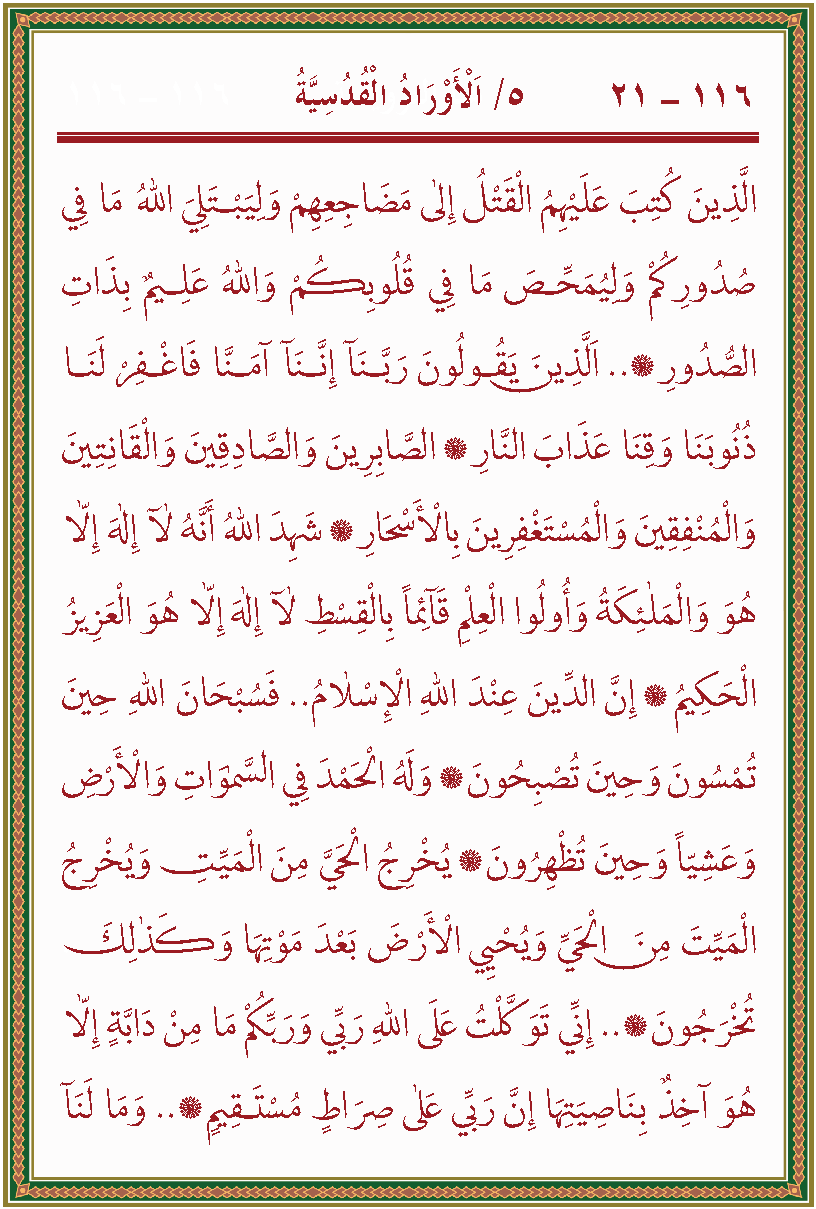 ١١٦ – ٢١ ٥/ اَلْأَوْرَادُ الْقُدُسِيَّةُ
الَّذِينَ كُتِبَ عَلَيْهِمُ الْقَتْلُ إِلٰى مَضَاجِعِهِمْ وَلِيَبْتَلِيَ اللهُ مَا فِي
صُدُورِكُمْ وَلِيُمَحِّصَ مَا فِي قُلُوبِكُمْ وَاللهُ عَلِيمٌ بِذَاتِ
الصُّدُورِ ۞ .. اَلَّذِينَ يَقُولُونَ رَبَّنَآ إِنَّنَآ آمَنَّا فَاغْفِرْ لَنَا
ذُنُوبَنَا وَقِنَا عَذَابَ النَّارِ ۞ الصَّابِرِينَ وَالصَّادِقِينَ وَالْقَانِتِينَ
وَالْمُنْفِقِينَ وَالْمُسْتَغْفِرِينَ بِالْأَسْحَارِ ۞ شَهِدَ اللهُ أَنَّهُ لَآ إِلٰهَ إِلَّا
هُوَ وَالْمَلٰئِكَةُ وَأُولُوا الْعِلْمِ قَآئِماً بِالْقِسْطِ لَآ إِلٰهَ إِلَّا هُوَ الْعَزِيزُ
الْحَكِيمُ ۞ إِنَّ الدِّينَ عِنْدَ اللهِ الْإِسْلَامُ.. فَسُبْحَانَ اللهِ حِينَ
تُمْسُونَ وَحِينَ تُصْبِحُونَ ۞ وَلَهُ الْحَمْدُ فِي السَّمٰوَاتِ وَالْأَرْضِ
وَعَشِيّاً وَحِينَ تُظْهِرُونَ ۞ يُخْرِجُ الْحَيَّ مِنَ الْمَيِّتِ وَيُخْرِجُ
الْمَيِّتَ مِنَ الْحَيِّ وَيُحْيِي الْأَرْضَ بَعْدَ مَوْتِهَا وَكَذٰلِكَ
تُخْرَجُونَ ۞ .. إِنِّي تَوَكَّلْتُ عَلَى اللهِ رَبِّي وَرَبِّكُمْ مَا مِنْ دَابَّةٍ إِلَّا
هُوَ آخِذٌ بِنَاصِيَتِهَا إِنَّ رَبِّي عَلٰى صِرَاطٍ مُسْتَقِيمٍ ۞ .. وَمَا لَنَآ